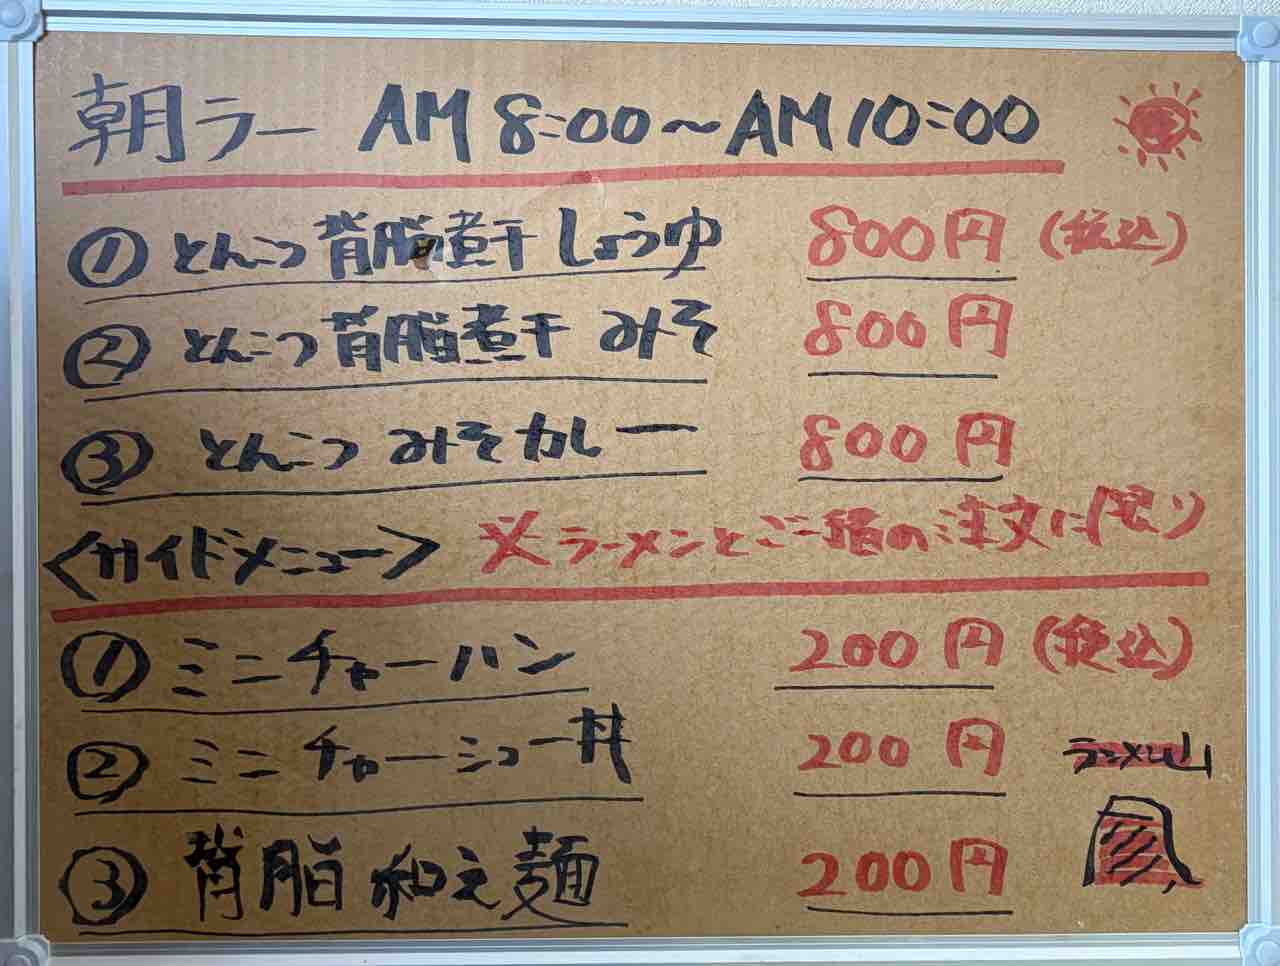 朝ラー AM 8:00～AM 10:00
① とんこつ 背脂煮干 しょうゆ 800円 (税込)
② とんこつ 背脂煮干 みそ 800円
③ とんこつ みそカレー 800円
<サイドメニュー> ※ラーメンとご一緒の注文に限り
① ミニチャーハン 200円 (税込)
② ミニチャーシュー丼 200円
ラーメン山
③ 背脂 和え麺 200円